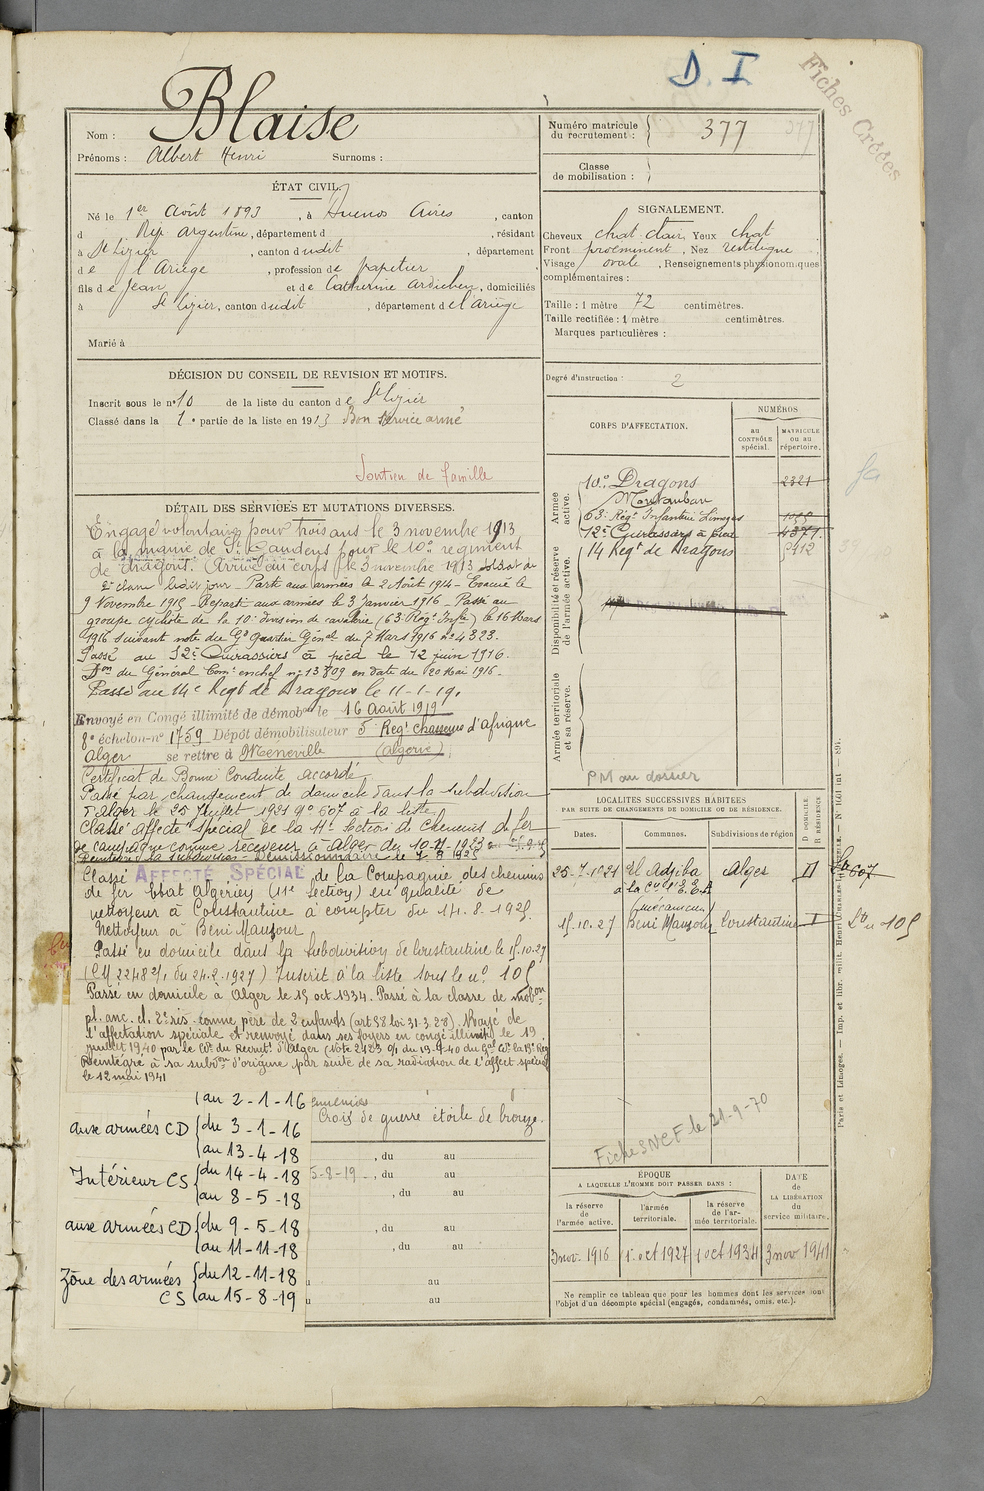 D. I
Fiches Créées
Nom : Blaise
Prénoms : Albert Henri Surnoms :
Numéro matricule du recrutement : 377
Classe de mobilisation :
ÉTAT CIVIL.
Né le 1er Août 1893, à Buenos Aires, canton
d Rép Argentine, département d , résidant
à St Lizier, canton dudit , département
de l'Ariège, profession de papetier
fils de Jean et de Catherine , domiciliés
à St Lizier, canton dudit , département de l'Ariège
Marié à
SIGNALEMENT.
Cheveux chat. clair, Yeux chat
Front proéminent, Nez rectiligne
Visage ovale, Renseignements physionomiques
complémentaires :
Taille : 1 mètre 72 centimètres.
Taille rectifiée : 1 mètre centimètres.
Marques particulières :
Degré d'instruction : 2
DÉCISION DU CONSEIL DE REVISION ET MOTIFS.
Inscrit sous le n° 10 de la liste du canton de St Lizier
Classé dans la 1e partie de la liste en 1913 Bon Service armé
Soutien de famille
DÉTAIL DES SERVICES ET MUTATIONS DIVERSES.
Engagé volontaire pour trois ans le 3 novembre 1913
à la mairie de St Gaudens pour le 10e régiment
de dragons. Arrivé au corps le 5 novembre 1913 soldat de
2e classe ledit jour. Parti aux armées le 2 Août 1914 - Evacué le
9 Novembre 1915 - Reparti aux armées le 3 Janvier 1916 - Passé au
groupe cycliste de la 10e division de cavalerie (63e Régt Infie) le 16 Mars
1916 suivant note du Gd Quartier Génal du 7 Mars 1916 N° 4323.
Passé au 12e Cuirassiers à pied le 12 juin 1916.
Don du Général Comt en chef n° 13809 en date du 20 Mai 1916.
Passé au 14e Regt de Dragons le 11-1-19.
Envoyé en Congé illimité de démobon le 16 Août 1919
8e échelon - n° 1759 Dépôt démobilisateur 5e Regt Chasseurs d'Afrique
Alger se retire à Ménerville (Algérie)
Certificat de Bonne Conduite accordé
Passé par changement de domicile dans la subdivision
d'Alger le 25 Juillet 1921 N° 607 à la liste
Classé affecté spécial de la 11e Section de Chemins de fer
de campagne comme receveur à Alger du 10-11-1923
Réintégré d la subdivision - Démissionnaire le 7.9.1925
Classé AFFECTÉ SPÉCIAL de la Compagnie des chemins
de fer Etat Algérien (11e Section) en qualité de
nettoyeur à Constantine à compter du 14.8.1925.
Nettoyeur à Beni Mansour
Passé en domicile dans la subdivision de Constantine le 15.10.27
(CM 2248 2/1 du 24.2.1927) Inscrit à la liste sous le n° 105
Passé en domicile à Alger le 15 oct 1934. Passé à la classe de mobon
pl. anc. comme père de 2 enfants (art 58 loi 31-3-28). Rayé de
l'affectation spéciale et renvoyé dans ses foyers en congé illimité le 19
juillet 1940 par le Ct du Recrutt d'Alger
Réintégré à sa subdon d'origine par suite de sa radiation de l'affect spéciale
le 12 mai 1941
Croix de guerre étoile de bronze.
au 2-1-16
aux armées CD du 3-1-16
au 13-4-18
Intérieur CS du 14-4-18
au 8-5-18
aux armées CD du 9-5-18
au 11-11-18
Zône des armées du 12-11-18
CS au 15-8-19
5-8-19
, du au
, du au
, du au
, du au
, du au
au
au
CORPS D'AFFECTATION.
NUMÉROS
au CONTRÔLE spécial.
MATRICULE ou au répertoire.
Armée active.
10e Dragons 2321
Montauban
63e Régt Infanterie Limoges
12e Cuirassiers à pied 4371
14 Regt de Dragons
Disponibilité et réserve de l'armée active.
Armée territoriale et sa réserve.
PM au dossier
LOCALITÉS SUCCESSIVES HABITÉES
PAR SUITE DE CHANGEMENTS DE DOMICILE OU DE RÉSIDENCE.
Dates. Communes. Subdivisions de région
D DOMICILE R RÉSIDENCE
25-7-1921 El Adjiba Alger D 607
(mécanicien)
15.10.27 Beni Mansour Constantine 105
Fiche SNCF le 21-9-70
ÉPOQUE
A LAQUELLE L'HOMME DOIT PASSER DANS :
la réserve de l'armée active.
l'armée territoriale.
la réserve de l'armée territoriale.
DATE de LA LIBÉRATION du service militaire.
3 nov. 1916 1er oct 1927 1 oct 1934 3 nov 1941
Ne remplir ce tableau que pour les hommes dont les services font
l'objet d'un décompte spécial (engagés, condamnés, omis, etc.).